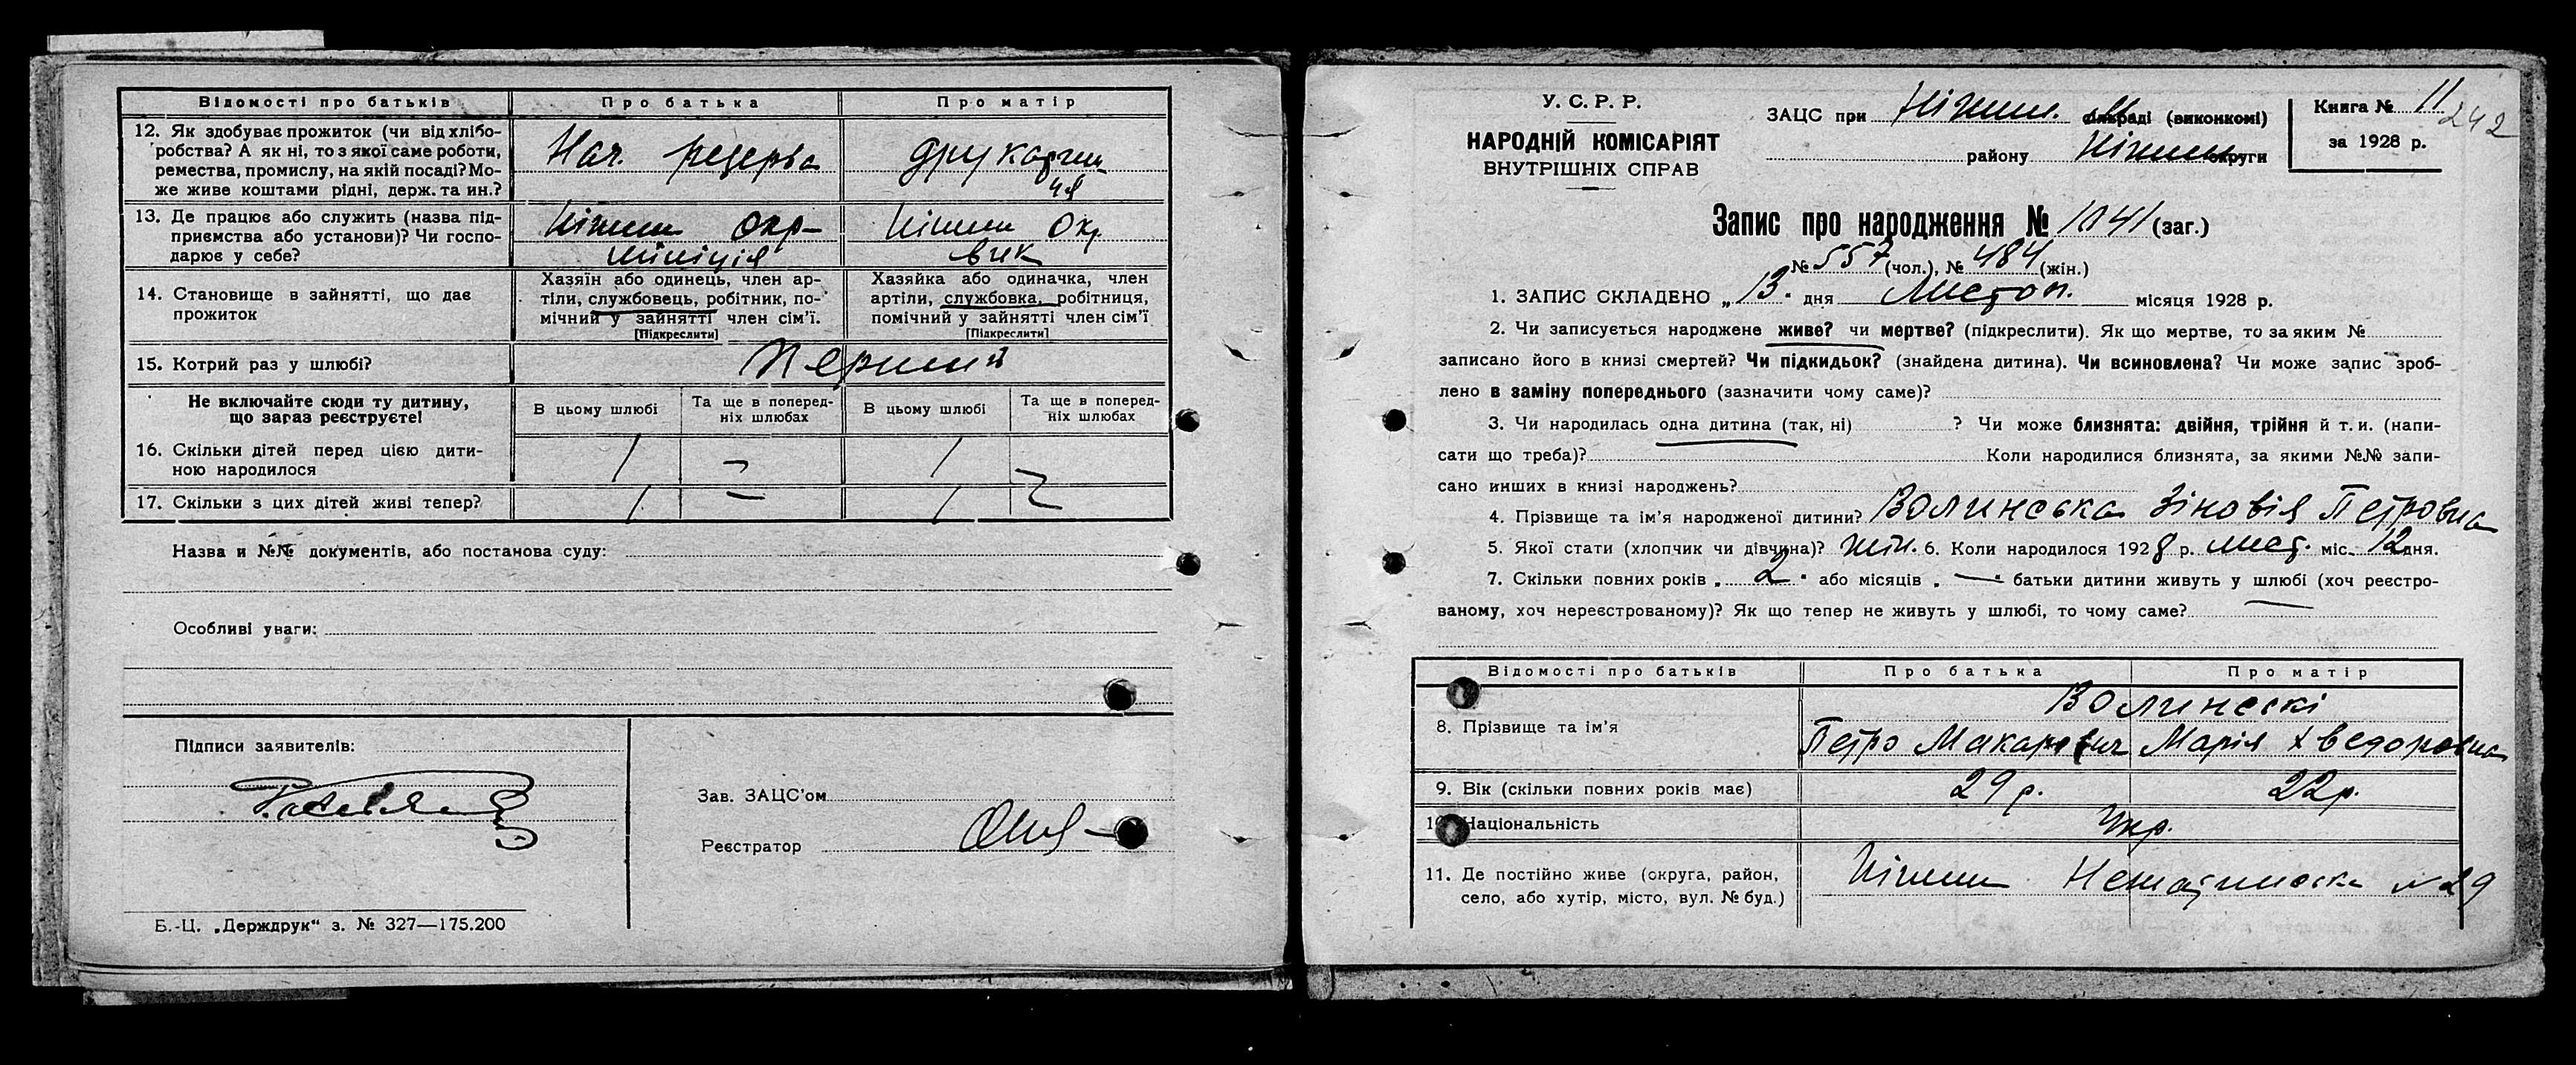 Відомості про батьків
Про батька
Про матір
12. Як здобуває прожиток (чи від хлібо-
робства? А як ні, то з якої саме роботи,
ремества, промислу, на якій посаді? Мо-
же живе коштами рідні, держ. та ин.?
Нач. резерва
друкарни
ця
13. Де працює або служить (назва під-
приємства або установи)? Чи госпо-
дарює у себе?
Ніжин Окр-
міліція
Ніжин Окр.
вик
14. Становище в зайнятті, що дає
прожиток
Хазяїн або одинець, член ар-
тіли, службовець, робітник, по-
мічний у зайнятті член сім'ї.
[Підкреслити]
Хазяйка або одиначка, член
артіли, службовка, робітниця,
помічний у зайнятті член сім'ї
[Підкреслити]
15. Котрий раз у шлюбі?
Перший
Не включайте сюди ту дитину,
що зараз реєструєте!
В цьому шлюбі
Та ще в поперед-
ніх шлюбах
В цьому шлюбі
Та ще в поперед-
ніх шлюбах
16. Скільки дітей перед цією дити-
ною народилося
1 – 1
17. Скільки з цих дітей живі тепер?
1 – 1
Назва и №№ документів, або постанова суду:
Особливі уваги:
Підписи заявителів:
Зав. ЗАЦС'ом
Реєстратор
Б.-Ц. „Держдрук“ з. № 327—175.200
У. С. Р. Р.
НАРОДНІЙ КОМІСАРІЯТ
ВНУТРІШНІХ СПРАВ
ЗАЦС при Ніжин. раді (виконкомі)
району Ніжин округи
Книга № 11
за 1928 р.
242
Запис про народження № 1041 (заг.)
№ 557 (чол.), № 484 (жін.)
1. ЗАПИС СКЛАДЕНО „13“ дня Листоп. місяця 1928 р.
2. Чи записується народжене живе? чи мертве? (підкреслити). Як що мертве, то за яким №
записано його в книзі смертей? Чи підкидьок? (знайдена дитина). Чи всиновлена? Чи може запис зроб-
лено в заміну попереднього (зазначити чому саме)?
3. Чи народилась одна дитина (так, ні) ? Чи може близнята: двійня, трійня й т. и. (напи-
сати що треба)? Коли народилися близнята, за якими №№ запи-
сано инших в книзі народжень?
4. Прізвище та ім'я народженої дитини? Волинська Зіновія Петровна
5. Якої стати (хлопчик чи дівчина)? жін. 6. Коли народилося 1928 р. лист. міс. 12 дня.
7. Скільки повних років „2“ або місяців „—“ батьки дитини живуть у шлюбі (хоч реєстро-
ваному, хоч нереєстрованому)? Як що тепер не живуть у шлюбі, то чому саме? —
Відомості про батьків
Про батька
Про матір
8. Прізвище та ім'я
Волинскі
Петро Макарович
Марія Хведоровна
9. Вік (скільки повних років має)
29 р.
22 р.
10. Національність
Укр.
11. Де постійно живе (округа, район,
село, або хутір, місто, вул. № буд.)
Ніжин № 29